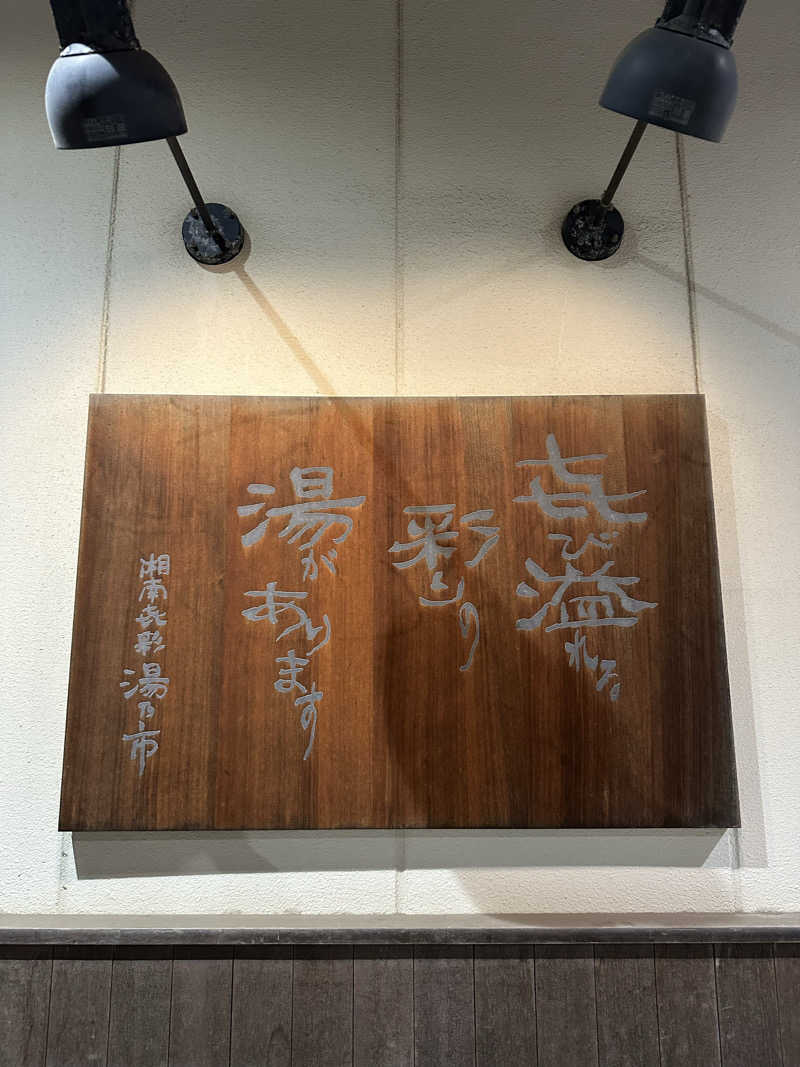 喜び溢れる
彩りの
湯があります
湘南喜彩 湯乃市